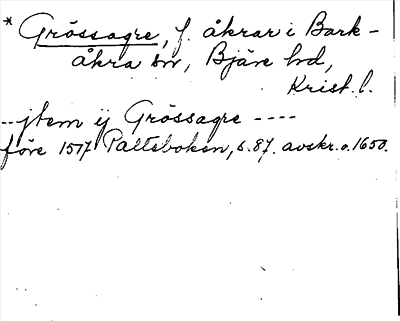 * Grössagre, f. åkrar i Bark-
åkra sn, Bjäre hd,
Krist. l.
--jtem ij Grössagre ----
före 1517 Palteboken, s. 87. avskr. o. 1650.